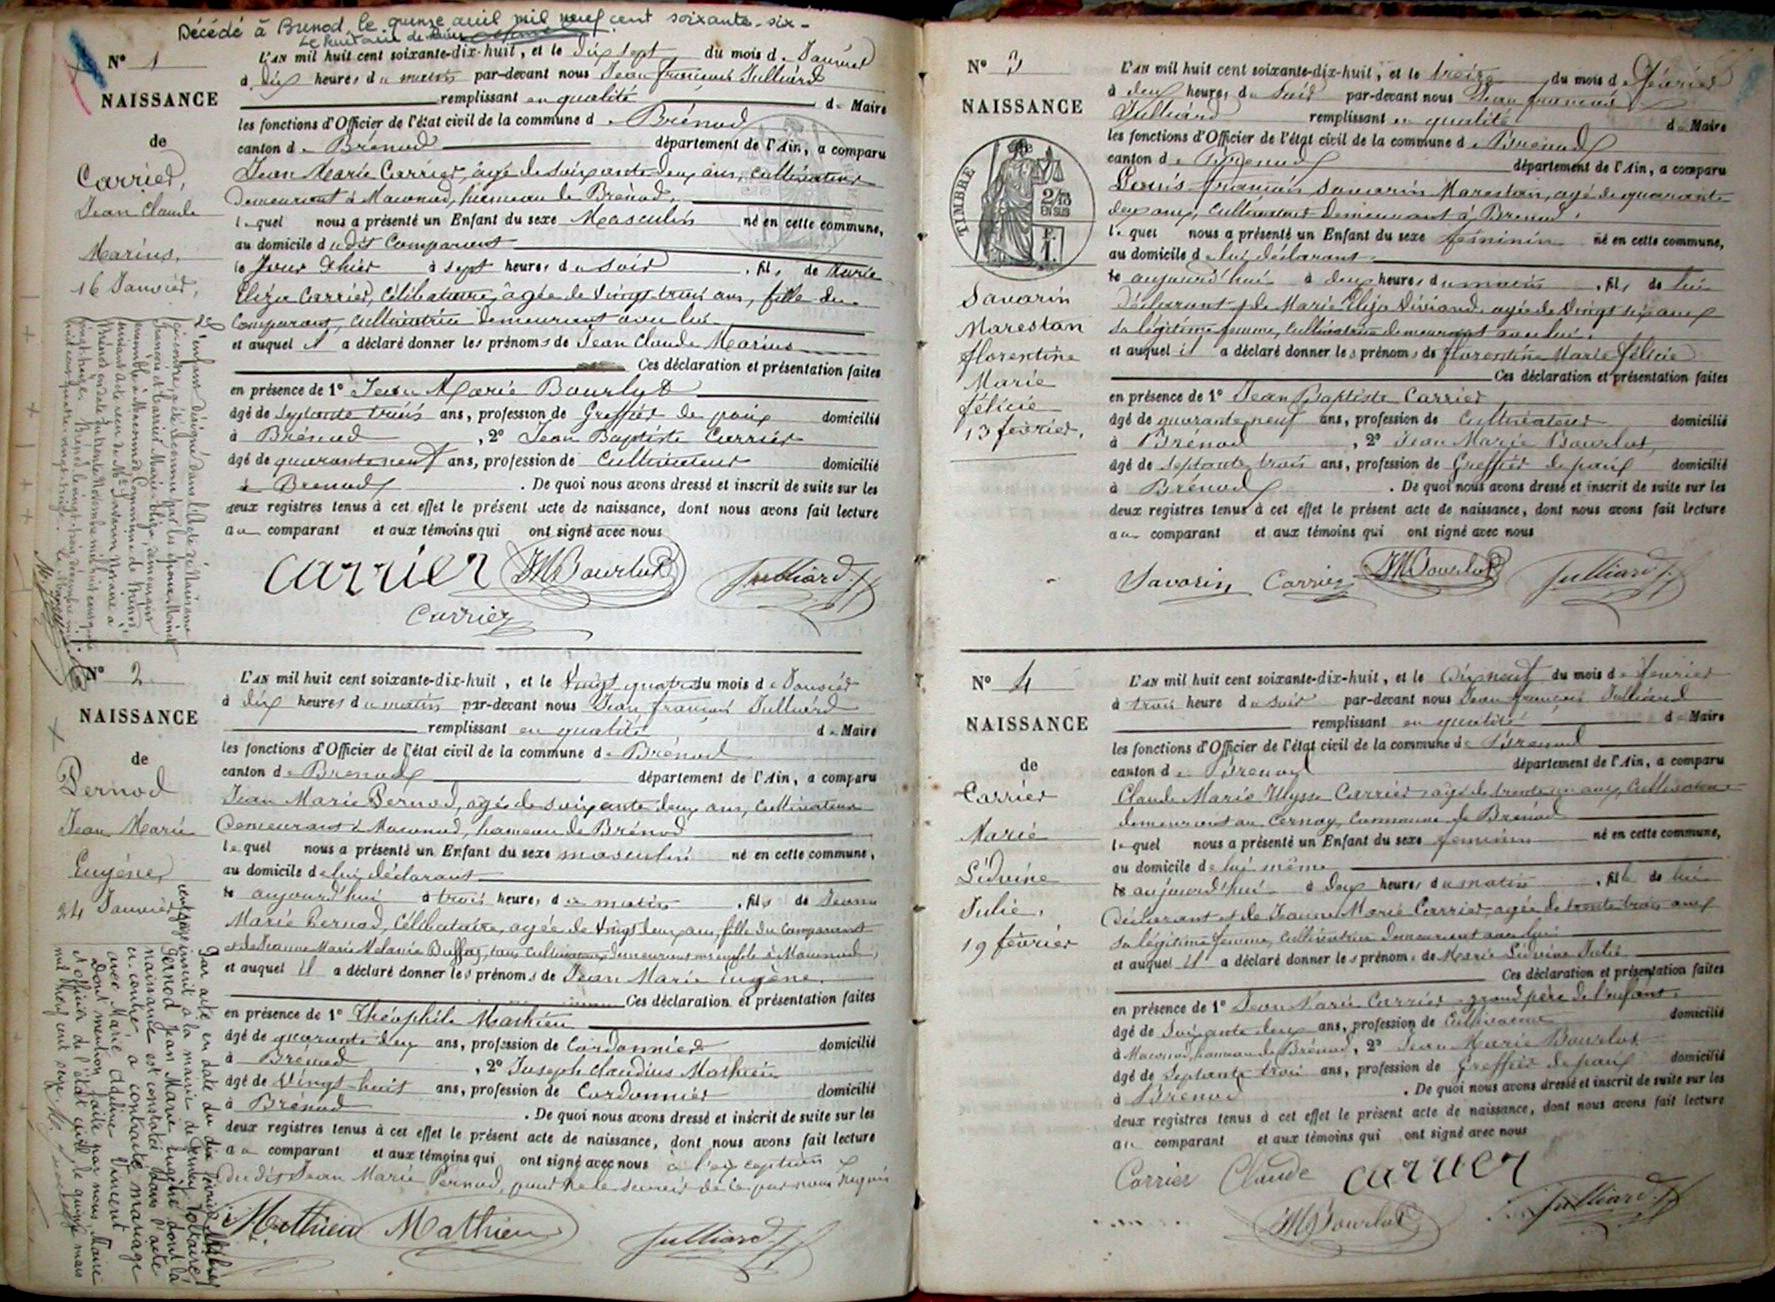 Décédé à Brenod le quinze avril mil neuf cent soixante-six-
Le
N° 1
NAISSANCE
de
Carrier,
Jean Claude
Marius.
16 Janvier,
L'AN mil huit cent soixante-dix-huit, et le dix sept du mois de Janvier
à dix heures du matin par-devant nous Jean françois Julliard
remplissant en qualité de Maire
les fonctions d'Officier de l'état civil de la commune de Brénod
canton de Brénod département de l'Ain, a comparu
Jean Marie Carrier, âgé de soixante deux ans, cultivateur
demeurant à Maconod, hameau de Brénod,
lequel nous a présenté un Enfant du sexe Masculin né en cette commune,
au domicile dudit Comparant
le Jour d'hier à sept heures du soir, fils de Marie
Eliza Carrier, Célibataire, âgée de vingt trois ans, fille du
Comparant, cultivatrice demeurant avec lui
et auquel il a déclaré donner les prénoms de Jean Claude Marius
Ces déclaration et présentation faites
en présence de 1° Jean Marie Bourlot
âgé de septante trois ans, profession de Greffier de paix domicilié
à Brénod, 2° Jean Baptiste Carrier
âgé de quarante neuf ans, profession de Cultivateur domicilié
à Brenod. De quoi nous avons dressé et inscrit de suite sur les
deux registres tenus à cet effet le présent acte de naissance, dont nous avons fait lecture
au comparant et aux témoins qui ont signé avec nous
carrier JM Bourlot Julliard J.f
Carrier
N° 2
NAISSANCE
de
Pernod
Jean Marie
Eugène,
24 Janvier
L'AN mil huit cent soixante-dix-huit, et le vingt quatre du mois de Janvier
à dix heures du matin par-devant nous Jean françois Julliard
remplissant en qualité de Maire
les fonctions d'Officier de l'état civil de la commune de Brénod
canton de Brenod département de l'Ain, a comparu
Jean Marie Pernod, âgé de soixante deux ans, cultivateur
Demeurant à Maconod, hameau de Brénod
lequel nous a présenté un Enfant du sexe masculin né en cette commune,
au domicile de lui déclarant
le aujourd'hui à trois heures du matin, fils de Jeanne
Marie Pernod, Célibataire, agée de vingt deux ans fille du Comparant
et de Jeanne Marie Mélanie Buffaz, tous cultivateurs demeurant ensemble à Maconod,
et auquel il a déclaré donner les prénoms de Jean Marie Eugène.
Ces déclaration et présentation faites
en présence de 1° Théophile Mathieu
âgé de quarante deux ans, profession de Cordonnier domicilié
à Brénod, 2° Joseph Claudius Mathieu
âgé de vingt huit ans, profession de Cordonnier domicilié
à Brénod. De quoi nous avons dressé et inscrit de suite sur les
deux registres tenus à cet effet le présent acte de naissance, dont nous avons fait lecture
au comparant et aux témoins qui ont signé avec nous à l'exception
du dit Jean Marie Pernod, pour ne le savoir de ce par nous requis
Mathieu Mathieu Julliard J.f
Par acte en date du dix février
inscrit à la mairie de
Pernod Jean Marie Eugène dont la
naissance est constatée dans l'acte
ci contre a contracté mariage
avec Marie Adeline Vincent
Dont mention faite par nous, Maire
et officier de l'état civil le quinze mars
mil neuf cent
N° 3
NAISSANCE
TIMBRE
2/10
EN SUS
Savarin
Marestan
florentine
Marie
félicie
13 février,
L'AN mil huit cent soixante-dix-huit, et le treize du mois de février
à deux heures du soir par-devant nous Jean françois
Julliard remplissant en qualité de Maire
les fonctions d'Officier de l'état civil de la commune de Brénod
canton de Brenod département de l'Ain, a comparu
Louis françois Savarin Marestan, agé de quarante
deux ans, cultivateur demeurant à Brenod,
lequel nous a présenté un Enfant du sexe féminin né en cette commune,
au domicile de lui déclarant
le aujourd'hui à deux heures du matin, fils de lui
déclarant et de Marie Eliza agée de vingt six ans
sa légitime femme, cultivatrice demeurant avec lui,
et auquel il a déclaré donner les prénoms de florentine Marie félicie
Ces déclaration et présentation faites
en présence de 1° Jean Baptiste Carrier
âgé de quarante neuf ans, profession de Cultivateur domicilié
à Brénod, 2° Jean Marie Bourlot,
âgé de septante trois ans, profession de Greffier de paix domicilié
à Brénod. De quoi nous avons dressé et inscrit de suite sur les
deux registres tenus à cet effet le présent acte de naissance, dont nous avons fait lecture
au comparant et aux témoins qui ont signé avec nous
Savarin Carrier JM Bourlot Julliard J.f
N° 4
NAISSANCE
de
Carrier
Marie
Lidvine
Julie,
19 février
L'AN mil huit cent soixante-dix-huit, et le dix neuf du mois de février
à trois heure du soir par-devant nous Jean françois Julliard
remplissant en qualité de Maire
les fonctions d'Officier de l'état civil de la commune de Brénod
canton de Brenod département de l'Ain, a comparu
Claude Marie Ulysse Carrier agé de trente un ans, Cultivateur
demeurant au Cernay, Commune de Brénod
lequel nous a présenté un Enfant du sexe féminin né en cette commune,
au domicile de lui même
le aujourd'hui à deux heures du matin, fille de lui
Déclarant et de Jeanne Marie Carrier agée de trente trois ans
sa légitime femme, cultivatrice demeurant avec lui
et auquel il a déclaré donner les prénoms de Marie Lidvine Julie
Ces déclaration et présentation faites
en présence de 1° Jean Marie Carrier grand père de l'enfant.
âgé de soixante deux ans, profession de Cultivateur domicilié
à Maconod, hameau de Brénod, 2° Jean Marie Bourlot
âgé de septante trois ans, profession de Greffier de paix domicilié
à Brénod. De quoi nous avons dressé et inscrit de suite sur les
deux registres tenus à cet effet le présent acte de naissance, dont nous avons fait lecture
au comparant et aux témoins qui ont signé avec nous
Carrier Claude carrier
JM Bourlot Julliard J.f